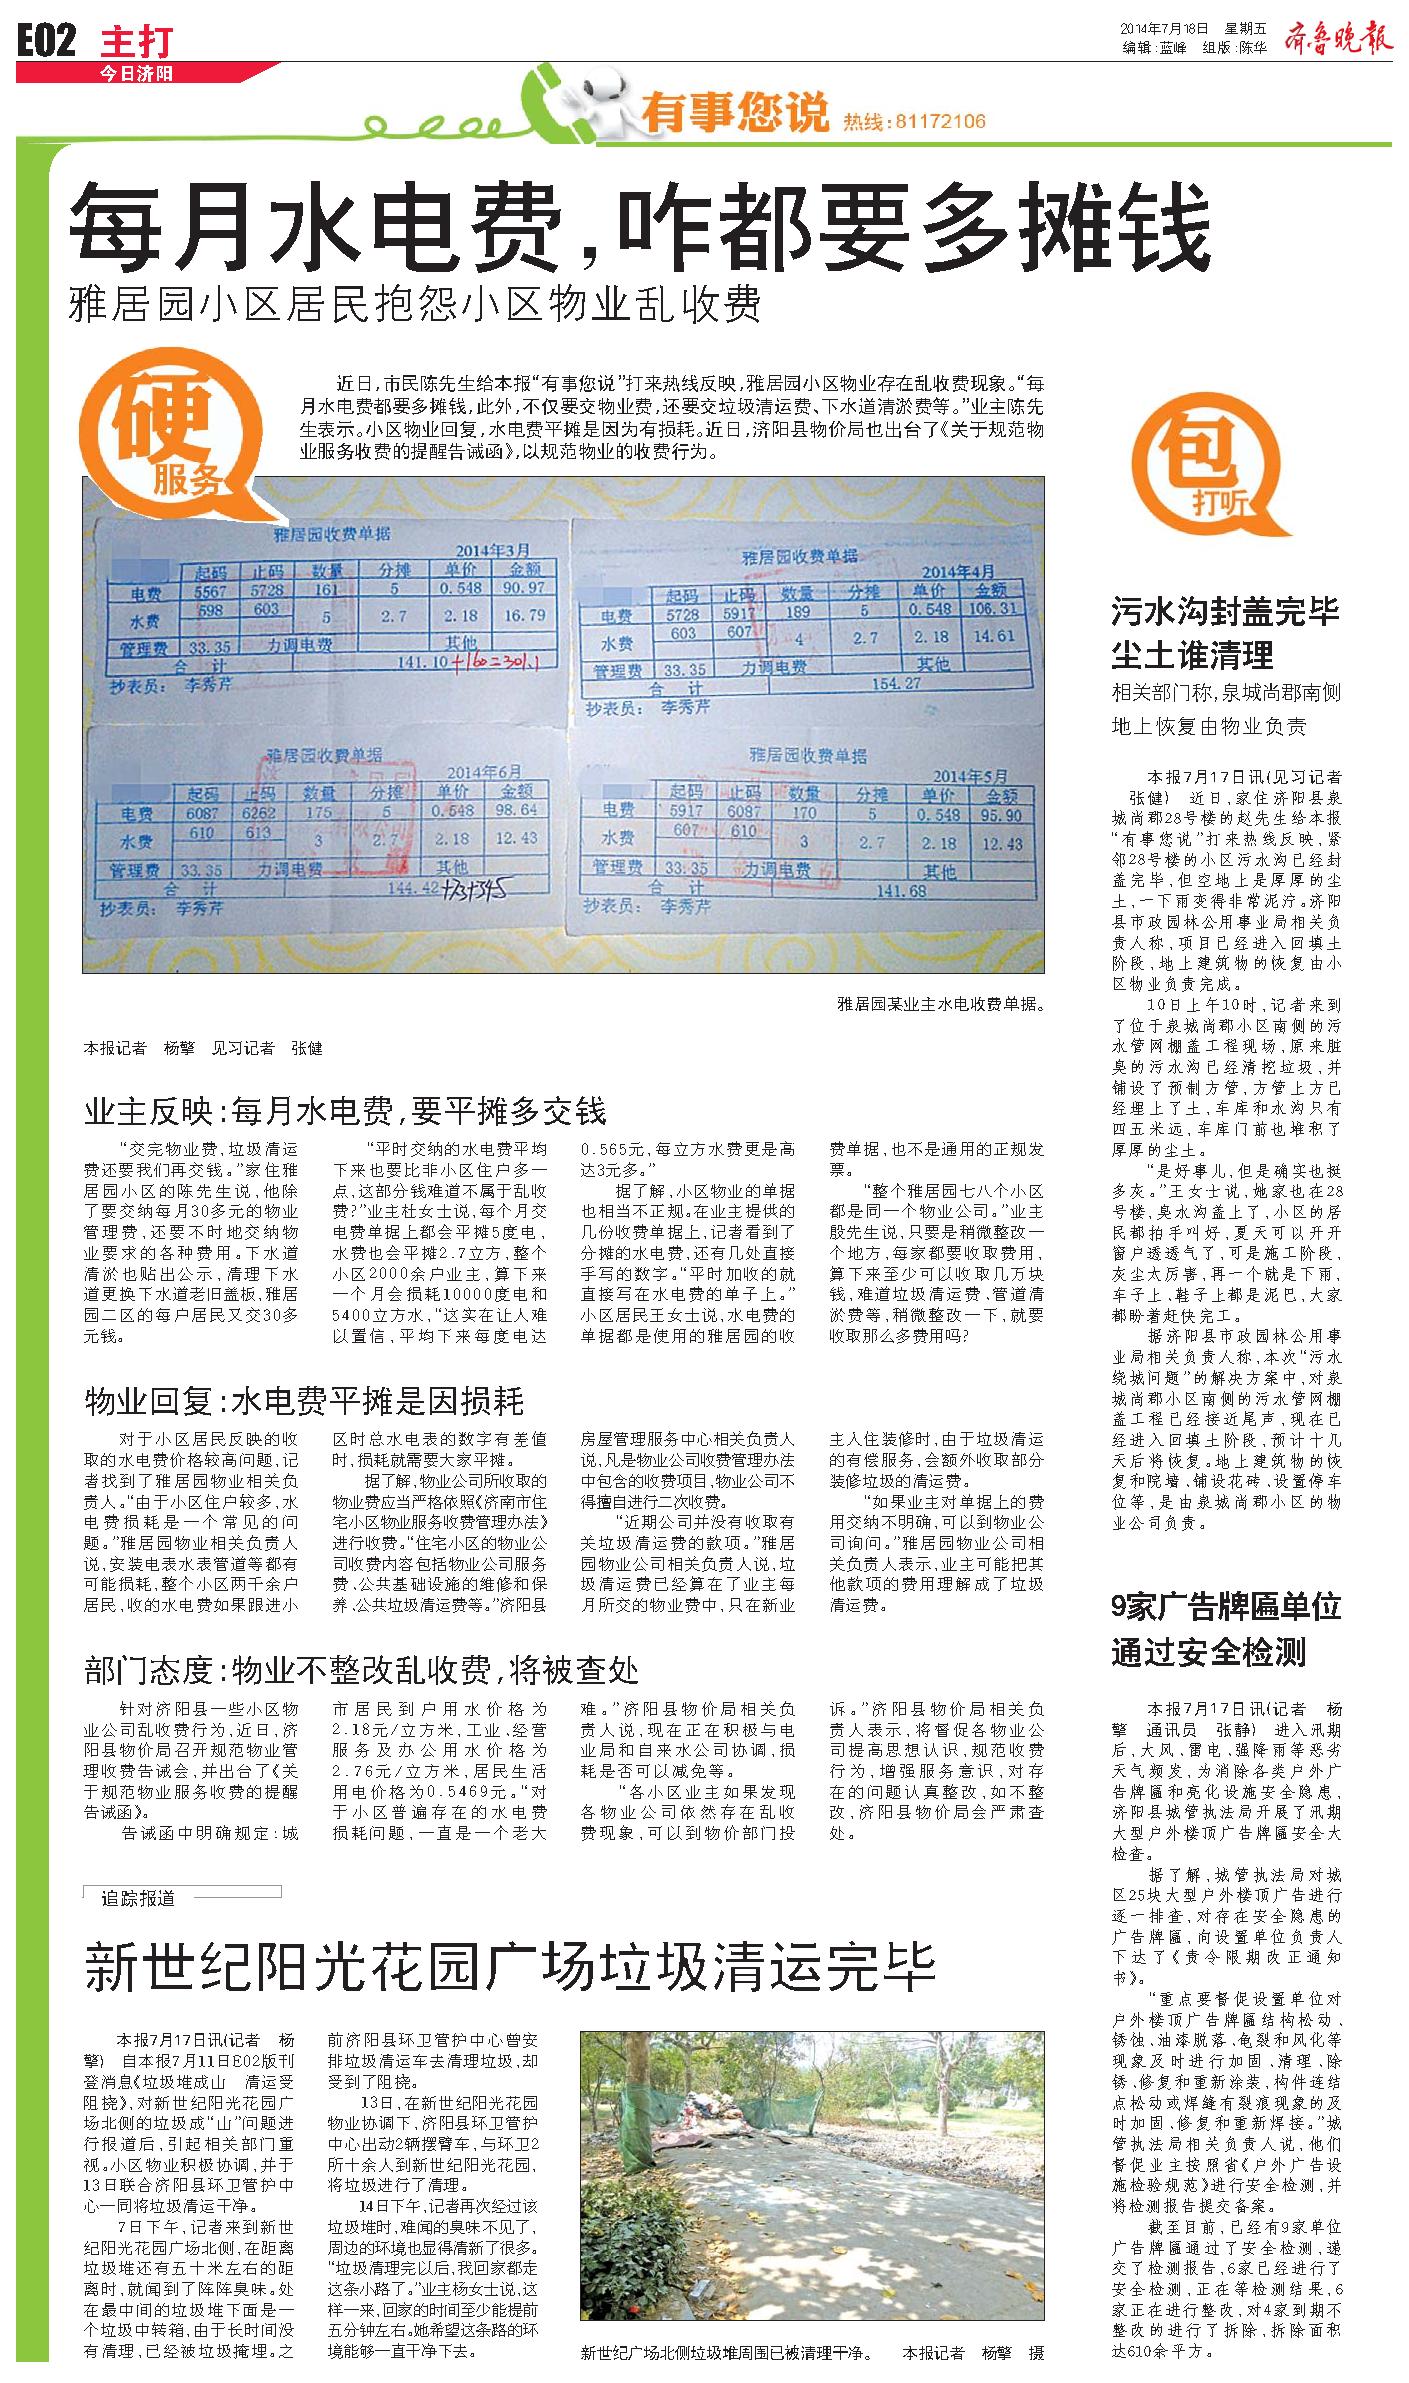 E02 主打
今日济阳
2014年7月18日 星期五
编辑:蓝峰 组版:陈华
齐鲁晚报
有事您说 热线:81172106
每月水电费,咋都要多摊钱
雅居园小区居民抱怨小区物业乱收费
硬
服务
近日,市民陈先生给本报“有事您说”打来热线反映,雅居园小区物业存在乱收费现象。“每
月水电费都要多摊钱,此外,不仅要交物业费,还要交垃圾清运费、下水道清淤费等。”业主陈先
生表示。小区物业回复,水电费平摊是因为有损耗。近日,济阳县物价局也出台了《关于规范物
业服务收费的提醒告诫函》,以规范物业的收费行为。
雅居园收费单据
2014年3月
起码 止码 数量 分摊 单价 金额
电费 5567 5728 161 5 0.548 90.97
水费 598 603 5 2.7 2.18 16.79
管理费 33.35 力调电费 其他
合 计 141.10+160=301.1
抄表员: 李秀芹
雅居园收费单据
2014年4月
起码 止码 数量 分摊 单价 金额
电费 5728 5917 189 5 0.548 106.31
水费 603 607 4 2.7 2.18 14.61
管理费 33.35 力调电费 其他
合 计 154.27
抄表员: 李秀芹
雅居园收费单据
2014年6月
起码 止码 数量 分摊 单价 金额
电费 6087 6262 175 5 0.548 98.64
水费 610 613 3 2.7 2.18 12.43
管理费 33.35 力调电费 其他
合 计 144.42
抄表员: 李秀芹
雅居园收费单据
2014年5月
起码 止码 数量 分摊 单价 金额
电费 5917 6087 170 5 0.548 95.90
水费 607 610 3 2.7 2.18 12.43
管理费 33.35 力调电费 其他
合 计 141.68
抄表员: 李秀芹
雅居园某业主水电收费单据。
本报记者 杨擎 见习记者 张健
业主反映:每月水电费,要平摊多交钱
“交完物业费,垃圾清运
费还要我们再交钱。”家住雅
居园小区的陈先生说,他除
了要交纳每月30多元的物业
管理费,还要不时地交纳物
业要求的各种费用。下水道
清淤也贴出公示,清理下水
道更换下水道老旧盖板,雅居
园二区的每户居民又交30多
元钱。
“平时交纳的水电费平均
下来也要比非小区住户多一
点,这部分钱难道不属于乱收
费?”业主杜女士说,每个月交
电费单据上都会平摊5度电,
水费也会平摊2.7立方,整个
小区2000余户业主,算下来
一个月会损耗10000度电和
5400立方水,“这实在让人难
以置信,平均下来每度电达
0.565元,每立方水费更是高
达3元多。”
据了解,小区物业的单据
也相当不正规。在业主提供的
几份收费单据上,记者看到了
分摊的水电费,还有几处直接
手写的数字。“平时加收的就
直接写在水电费的单子上。”
小区居民王女士说,水电费的
单据都是使用的雅居园的收
费单据,也不是通用的正规发
票。
“整个雅居园七八个小区
都是同一个物业公司。”业主
殷先生说,只要是稍微整改一
个地方,每家都要收取费用,
算下来至少可以收取几万块
钱,难道垃圾清运费、管道清
淤费等,稍微整改一下,就要
收取那么多费用吗?
物业回复:水电费平摊是因损耗
对于小区居民反映的收
取的水电费价格较高问题,记
者找到了雅居园物业相关负
责人。“由于小区住户较多,水
电费损耗是一个常见的问
题。”雅居园物业相关负责人
说,安装电表水表管道等都有
可能损耗,整个小区两千余户
居民,收的水电费如果跟进小
区时总水电表的数字有差值
时,损耗就需要大家平摊。
据了解,物业公司所收取的
物业费应当严格依照《济南市住
宅小区物业服务收费管理办法》
进行收费。“住宅小区的物业公
司收费内容包括物业公司服务
费、公共基础设施的维修和保
养、公共垃圾清运费等。”济阳县
房屋管理服务中心相关负责人
说,凡是物业公司收费管理办法
中包含的收费项目,物业公司不
得擅自进行二次收费。
“近期公司并没有收取有
关垃圾清运费的款项。”雅居
园物业公司相关负责人说,垃
圾清运费已经算在了业主每
月所交的物业费中,只在新业
主入住装修时,由于垃圾清运
的有偿服务,会额外收取部分
装修垃圾的清运费。
“如果业主对单据上的费
用交纳不明确,可以到物业公
司询问。”雅居园物业公司相
关负责人表示,业主可能把其
他款项的费用理解成了垃圾
清运费。
部门态度:物业不整改乱收费,将被查处
针对济阳县一些小区物
业公司乱收费行为,近日,济
阳县物价局召开规范物业管
理收费告诫会,并出台了《关
于规范物业服务收费的提醒
告诫函》。
告诫函中明确规定:城
市居民到户用水价格为
2.18元/立方米,工业、经营
服务及办公用水价格为
2.76元/立方米,居民生活
用电价格为0.5469元。“对
于小区普遍存在的水电费
损耗问题,一直是一个老大
难。”济阳县物价局相关负
责人说,现在正在积极与电
业局和自来水公司协调,损
耗是否可以减免等。
“各小区业主如果发现
各物业公司依然存在乱收
费现象,可以到物价部门投
诉。”济阳县物价局相关负
责人表示,将督促各物业公
司提高思想认识,规范收费
行为,增强服务意识,对存
在的问题认真整改,如不整
改,济阳县物价局会严肃查
处。
追踪报道
新世纪阳光花园广场垃圾清运完毕
本报7月17日讯(记者 杨
擎) 自本报7月11日E02版刊
登消息《垃圾堆成山 清运受
阻挠》,对新世纪阳光花园广
场北侧的垃圾成“山”问题进
行报道后,引起相关部门重
视。小区物业积极协调,并于
13日联合济阳县环卫管护中
心一同将垃圾清运干净。
7日下午,记者来到新世
纪阳光花园广场北侧,在距离
垃圾堆还有五十米左右的距
离时,就闻到了阵阵臭味。处
在最中间的垃圾堆下面是一
个垃圾中转箱,由于长时间没
有清理,已经被垃圾掩埋。之
前济阳县环卫管护中心曾安
排垃圾清运车去清理垃圾,却
受到了阻挠。
13日,在新世纪阳光花园
物业协调下,济阳县环卫管护
中心出动2辆摆臂车,与环卫2
所十余人到新世纪阳光花园,
将垃圾进行了清理。
14日下午,记者再次经过该
垃圾堆时,难闻的臭味不见了,
周边的环境也显得清新了很多。
“垃圾清理完以后,我回家都走
这条小路了。”业主杨女士说,这
样一来,回家的时间至少能提前
五分钟左右。她希望这条路的环
境能够一直干净下去。
新世纪广场北侧垃圾堆周围已被清理干净。 本报记者 杨擎 摄
包
打听
污水沟封盖完毕
尘土谁清理
相关部门称,泉城尚郡南侧
地上恢复由物业负责
本报7月17日讯(见习记者
张健) 近日,家住济阳县泉
城尚郡28号楼的赵先生给本报
“有事您说”打来热线反映,紧
邻28号楼的小区污水沟已经封
盖完毕,但空地上是厚厚的尘
土,一下雨变得非常泥泞。济阳
县市政园林公用事业局相关负
责人称,项目已经进入回填土
阶段,地上建筑物的恢复由小
区物业负责完成。
10日上午10时,记者来到
了位于泉城尚郡小区南侧的污
水管网棚盖工程现场,原来脏
臭的污水沟已经清挖垃圾,并
铺设了预制方管,方管上方已
经埋上了土,车库和水沟只有
四五米远,车库门前也堆积了
厚厚的尘土。
“是好事儿,但是确实也挺
多灰。”王女士说,她家也在28
号楼,臭水沟盖上了,小区的居
民都拍手叫好,夏天可以开开
窗户透透气了,可是施工阶段,
灰尘太厉害,再一个就是下雨,
车子上、鞋子上都是泥巴,大家
都盼着赶快完工。
据济阳县市政园林公用事
业局相关负责人称,本次“污水
绕城问题”的解决方案中,对泉
城尚郡小区南侧的污水管网棚
盖工程已经接近尾声,现在已
经进入回填土阶段,预计十几
天后将恢复。地上建筑物的恢
复和院墙、铺设花砖、设置停车
位等,是由泉城尚郡小区的物
业公司负责。
9家广告牌匾单位
通过安全检测
本报7月17日讯(记者 杨
擎 通讯员 张静) 进入汛期
后,大风、雷电、强降雨等恶劣
天气频发,为消除各类户外广
告牌匾和亮化设施安全隐患,
济阳县城管执法局开展了汛期
大型户外楼顶广告牌匾安全大
检查。
据了解,城管执法局对城
区25块大型户外楼顶广告进行
逐一排查,对存在安全隐患的
广告牌匾,向设置单位负责人
下达了《责令限期改正通知
书》。
“重点要督促设置单位对
户外楼顶广告牌匾结构松动、
锈蚀、油漆脱落、龟裂和风化等
现象及时进行加固、清理、除
锈、修复和重新涂装,构件连结
点松动或焊缝有裂痕现象的及
时加固、修复和重新焊接。”城
管执法局相关负责人说,他们
督促业主按照省《户外广告设
施检验规范》进行安全检测,并
将检测报告提交备案。
截至目前,已经有9家单位
广告牌匾通过了安全检测,递
交了检测报告,6家已经进行了
安全检测,正在等检测结果,6
家正在进行整改,对4家到期不
整改的进行了拆除,拆除面积
达610余平方。